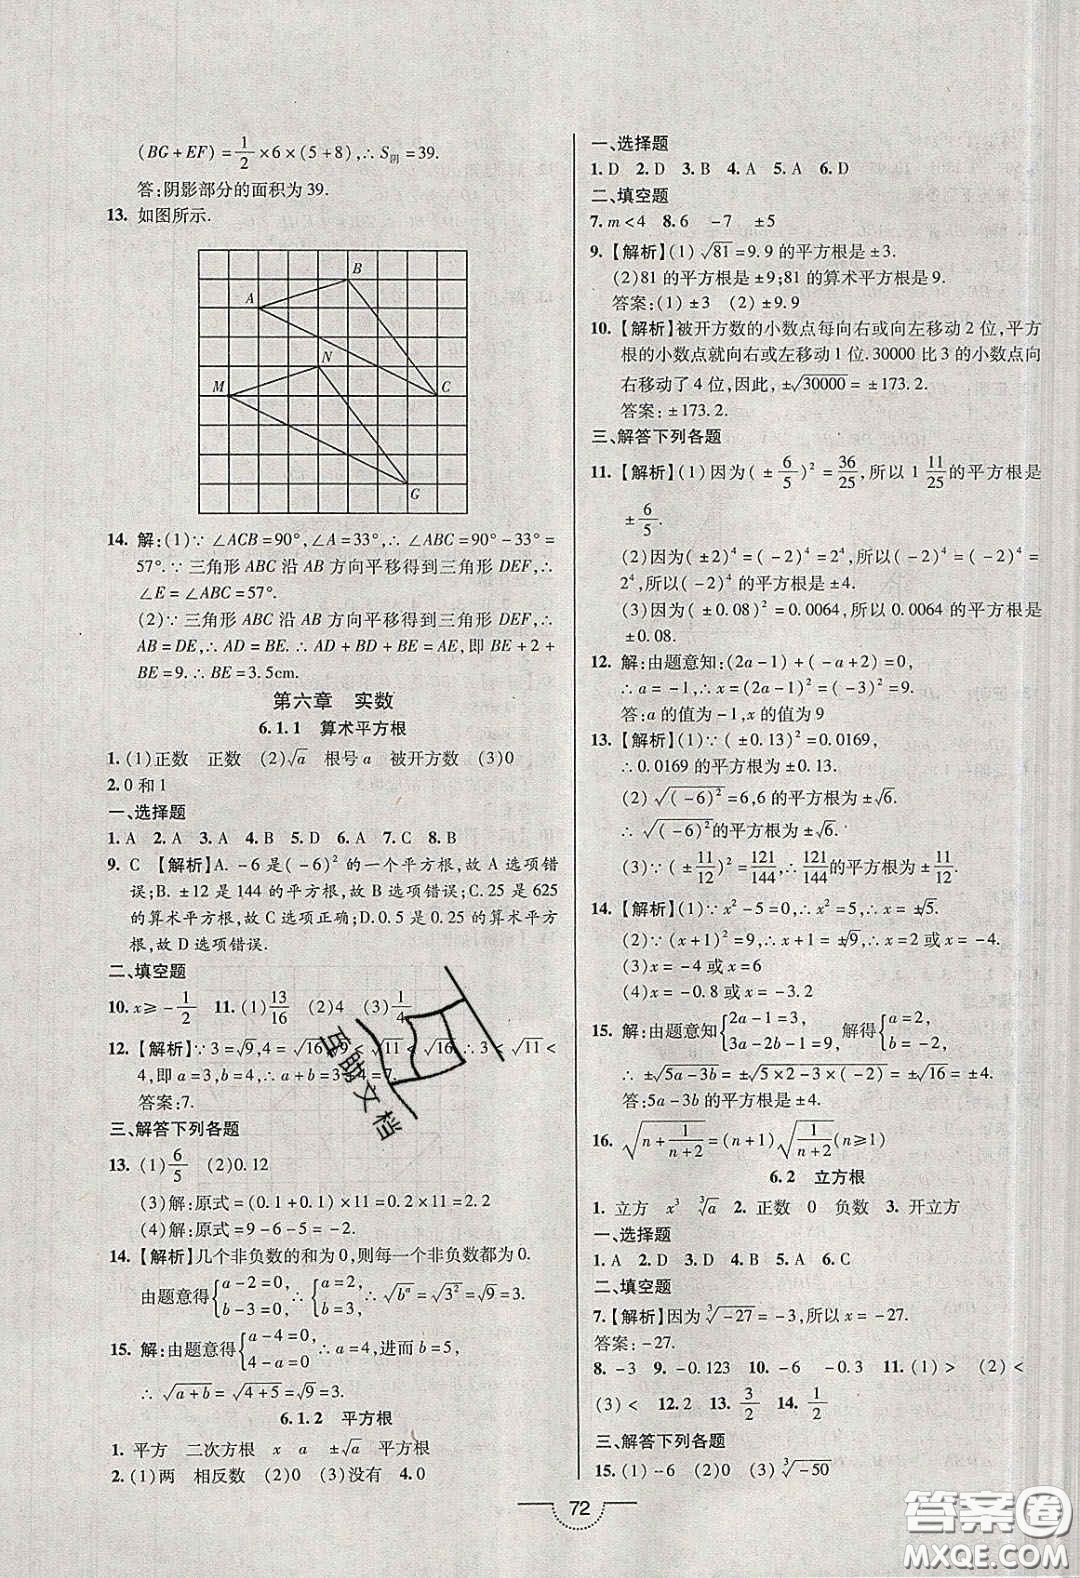 (BG+EF)=1/2×6×(5+8),∴S阴=39.
答:阴影部分的面积为 39.
13. 如图所示.
B
A
N
M
C
G
14. 解:(1)∵∠ACB=90°,∠A=33°,∴∠ABC=90°-33°=
57°.∵三角形 ABC 沿 AB 方向平移得到三角形 DEF,∴
∠E=∠ABC=57°.
(2)∵三角形 ABC 沿 AB 方向平移得到三角形 DEF,∴
AB=DE,∴AD=BE.∴AD+BD+BE=AE,即 BE+2+
BE=9.∴BE=3.5cm.
第六章 实数
6.1.1 算术平方根
1.(1)正数 正数 (2)√a 根号 a 被开方数 (3)0
2.0 和 1
一、选择题
1. A 2. A 3. A 4. B 5. D 6. A 7. C 8. B
9. C 【解析】A. -6 是(-6)² 的一个平方根,故 A 选项错
误;B. ±12 是 144 的平方根,故 B 选项错误;C. 25 是 625
的算术平方根,故 C 选项正确;D. 0.5 是 0.25 的算术平方
根,故 D 选项错误.
二、填空题
10. x≥-1/2 11. (1)13/16 (2)4 (3)1/4
12. 【解析】∵3=√9,4=√16,√9<√11<√16,∴3<√11<
4,即 a=3,b=4,∴a+b=3+4=7.
答案:7.
三、解答下列各题
13. (1)6/5 (2)0.12
(3)解:原式=(0.1+0.1)×11=0.2×11=2.2
(4)解:原式=9-6-5=-2.
14. 【解析】几个非负数的和为 0,则每一个非负数都为 0.
由题意得{a-2=0, b-3=0,∴{a=2, b=3,∴√bᵃ=√3²=√9=3.
15. 解:由题意得{a-4=0, 4-a=0∴a=4,进而 b=5,
∴√a+b=√4+5=√9=3.
6.1.2 平方根
1. 平方 二次方根 x a ±√a 平方根
2. (1)两 相反数 (2)0 (3)没有 4.0
一、选择题
1. D 2. D 3. B 4. A 5. A 6. D
二、填空题
7. m<4 8. 6 -7 ±5
9. 【解析】(1)√81=9.9 的平方根是±3.
(2)81 的平方根是±9;81 的算术平方根是 9.
答案:(1)±3 (2)±9.9
10. 【解析】被开方数的小数点每向右或向左移动 2 位,平方
根的小数点就向右或左移动 1 位.30000 比 3 的小数点向
右移动了 4 位,因此,±√30000=±173.2.
答案:±173.2.
三、解答下列各题
11. 【解析】(1)因为(±6/5)²=36/25,所以 1 11/25 的平方根是
±6/5.
(2)因为(±2)⁴=(-2)⁴=2⁴,所以(-2)⁴=(-2)⁴=
2⁴,所以(-2)⁴ 的平方根是±4.
(3)因为(±0.08)²=0.0064,所以 0.0064 的平方根是
±0.08.
12. 解:由题意知:(2a-1)+(-a+2)=0,
∴a=-1,∴x=(2a-1)²=(-3)²=9.
答:a 的值为-1,x 的值为 9
13. 【解析】(1)∵(±0.13)²=0.0169,
∴0.0169 的平方根为±0.13.
(2)√(-6)²=6,6 的平方根为±√6.
∴√(-6)²的平方根为±√6.
(3)∵(±11/12)²=121/144,∴121/144的平方根为±11/12.
14. 【解析】(1)∵x²-5=0,∴x²=5,∴x=±√5.
(2)∵(x+1)²=9,∴x+1=±√9,∴x=2 或 x=-4.
(3)x=-4 或 x=6
(4)x=-4 或 x=-3.2
15. 解:由题意知{2a-1=3, 3a-2b-1=9, 解得{a=2, b=-2.
∴±√5a-3b=±√5×2-3×(-2)=±√16=±4.
答:5a-3b 的平方根是±4.
16. √n+1/(n+2)=(n+1)√1/(n+2)(n≥1)
6.2 立方根
1. 立方 x³ ³√a 2. 正数 0 负数 3. 开立方
一、选择题
1. A 2. D 3. D 4. A 5. A 6. C
二、填空题
7. 【解析】因为³√-27=-3,所以 x=-27.
答案:-27.
8. -3 9. -0.123 10. -6 -0.3 11. (1)> (2)<
(3)< 12. 2 13. 3/2 14. 1/2
三、解答下列各题
15. (1)-6 (2)0 (3)³√-50
72
互助文档
答案圈
MXQE.COM